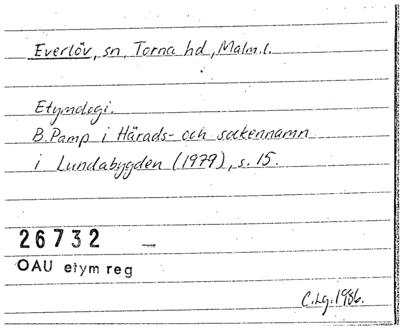 Everlöv, sn, Torna hd, Malm.l.
Etymologi.
B. Pamp i Härads- och sockennamn
i Lundabygden (1979), s. 15.
26732 —
OAU etym reg
C.Lg. 1986.